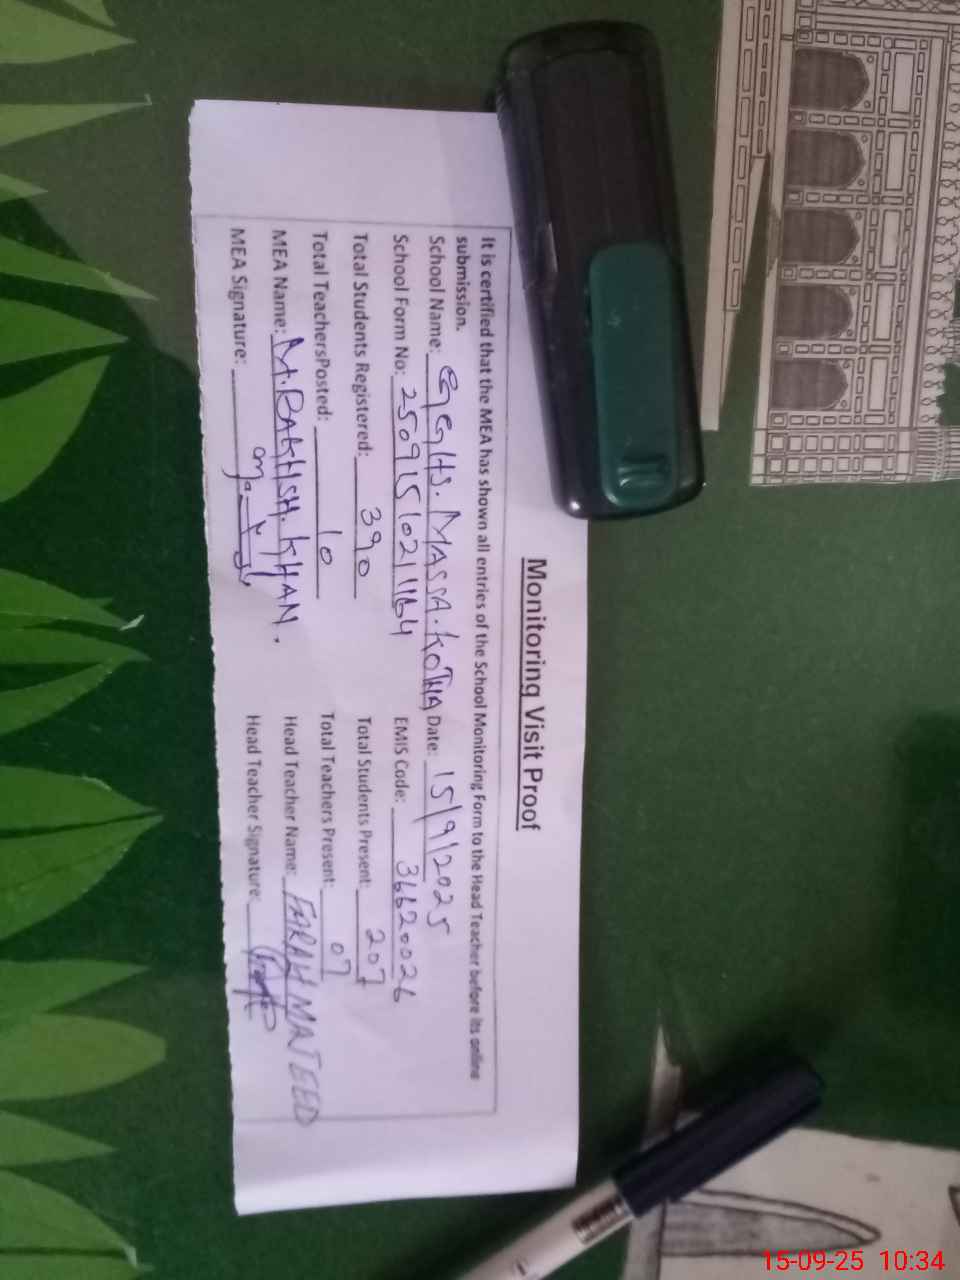 Monitoring Visit Proof
It is certified that the MEA has shown all entries of the School Monitoring Form to the Head Teacher before its online
submission.
School Name: GGHS. MASSA. KOTHA Date: 15/9/2025
School Form No: 25091510211164 EMIS Code: 36620026
Total Students Registered: 390 Total Students Present: 207
Total TeachersPosted: 10 Total Teachers Present: 07
MEA Name: M. BAKHSH. KHAN. Head Teacher Name: FARAH MAJEED
MEA Signature: Head Teacher Signature:
15-09-25 10:34